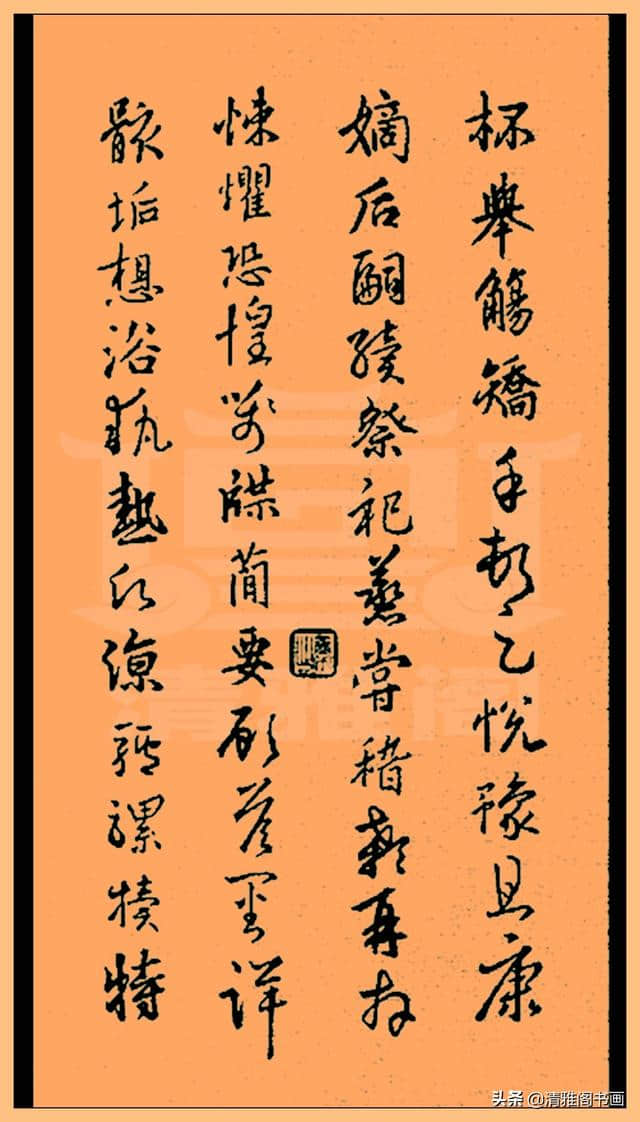 杯舉觴矯手頓足悅豫且康
嫡后嗣續祭祀蒸嘗稽顙再拜
悚懼恐惶牋牒簡要顧答審詳
骸垢想浴執熱願涼驢騾犢特
清雅阁
头条 @清雅阁书画